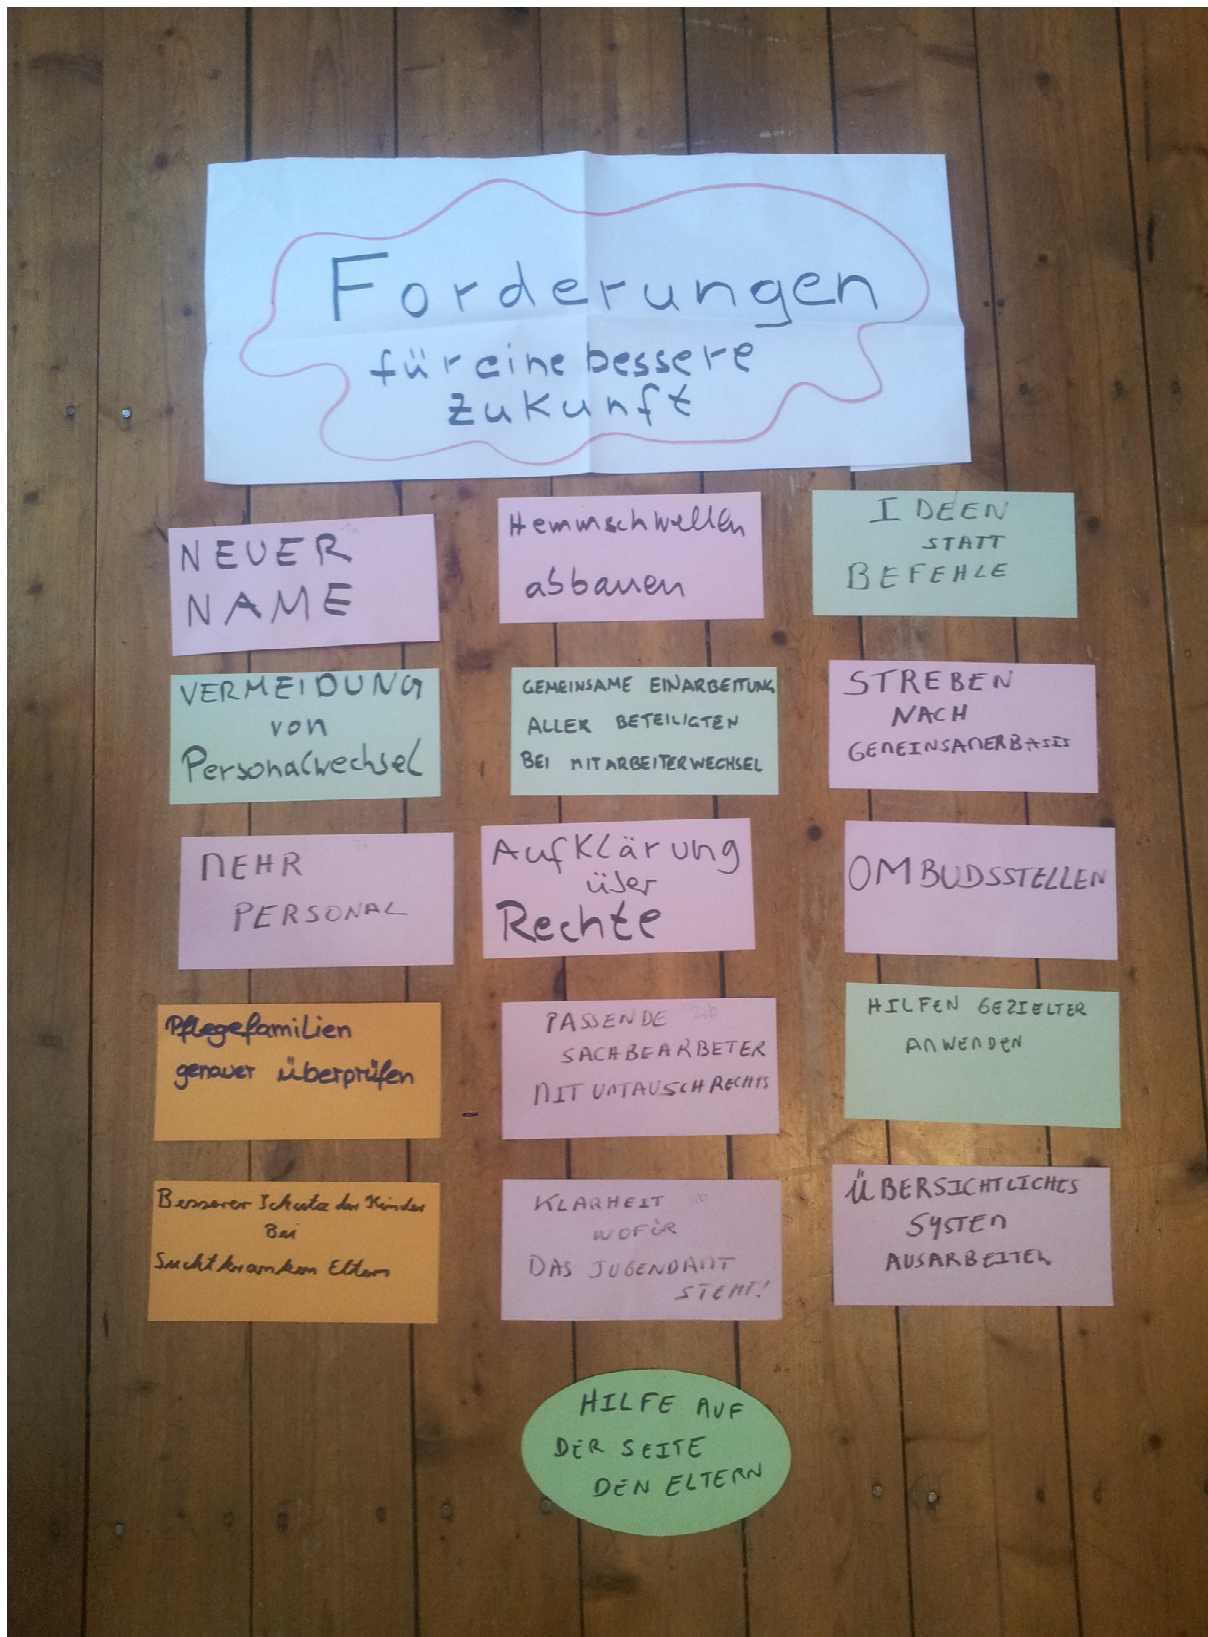 Forderungen
für eine bessere
Zukunft
NEUER
NAME
Hemmschwellen
abbauen
IDEEN
STATT
BEFEHLE
VERMEIDUNG
von
Personalwechsel
GEMEINSAME EINARBEITUNG
ALLER BETEILIGTEN
BEI MITARBEITERWECHSEL
STREBEN
NACH
GEMEINSAMER BASIS
MEHR
PERSONAL
Aufklärung
über
Rechte
OMBUDSSTELLEN
Pflegefamilien
genauer überprüfen
PASSENDE
SACHBEARBETER
MIT UMTAUSCHRECHTS
HILFEN GEZIELTER
ANWENDEN
Besserer Schutz der Kinder
Bei
Suchtkranken Eltern
KLARHEIT
WOFÜR
DAS JUGENDAMT
STEHT!
ÜBERSICHTLICHES
SYSTEM
AUSARBEITEN
HILFE AUF
DER SEITE
DEN ELTERN